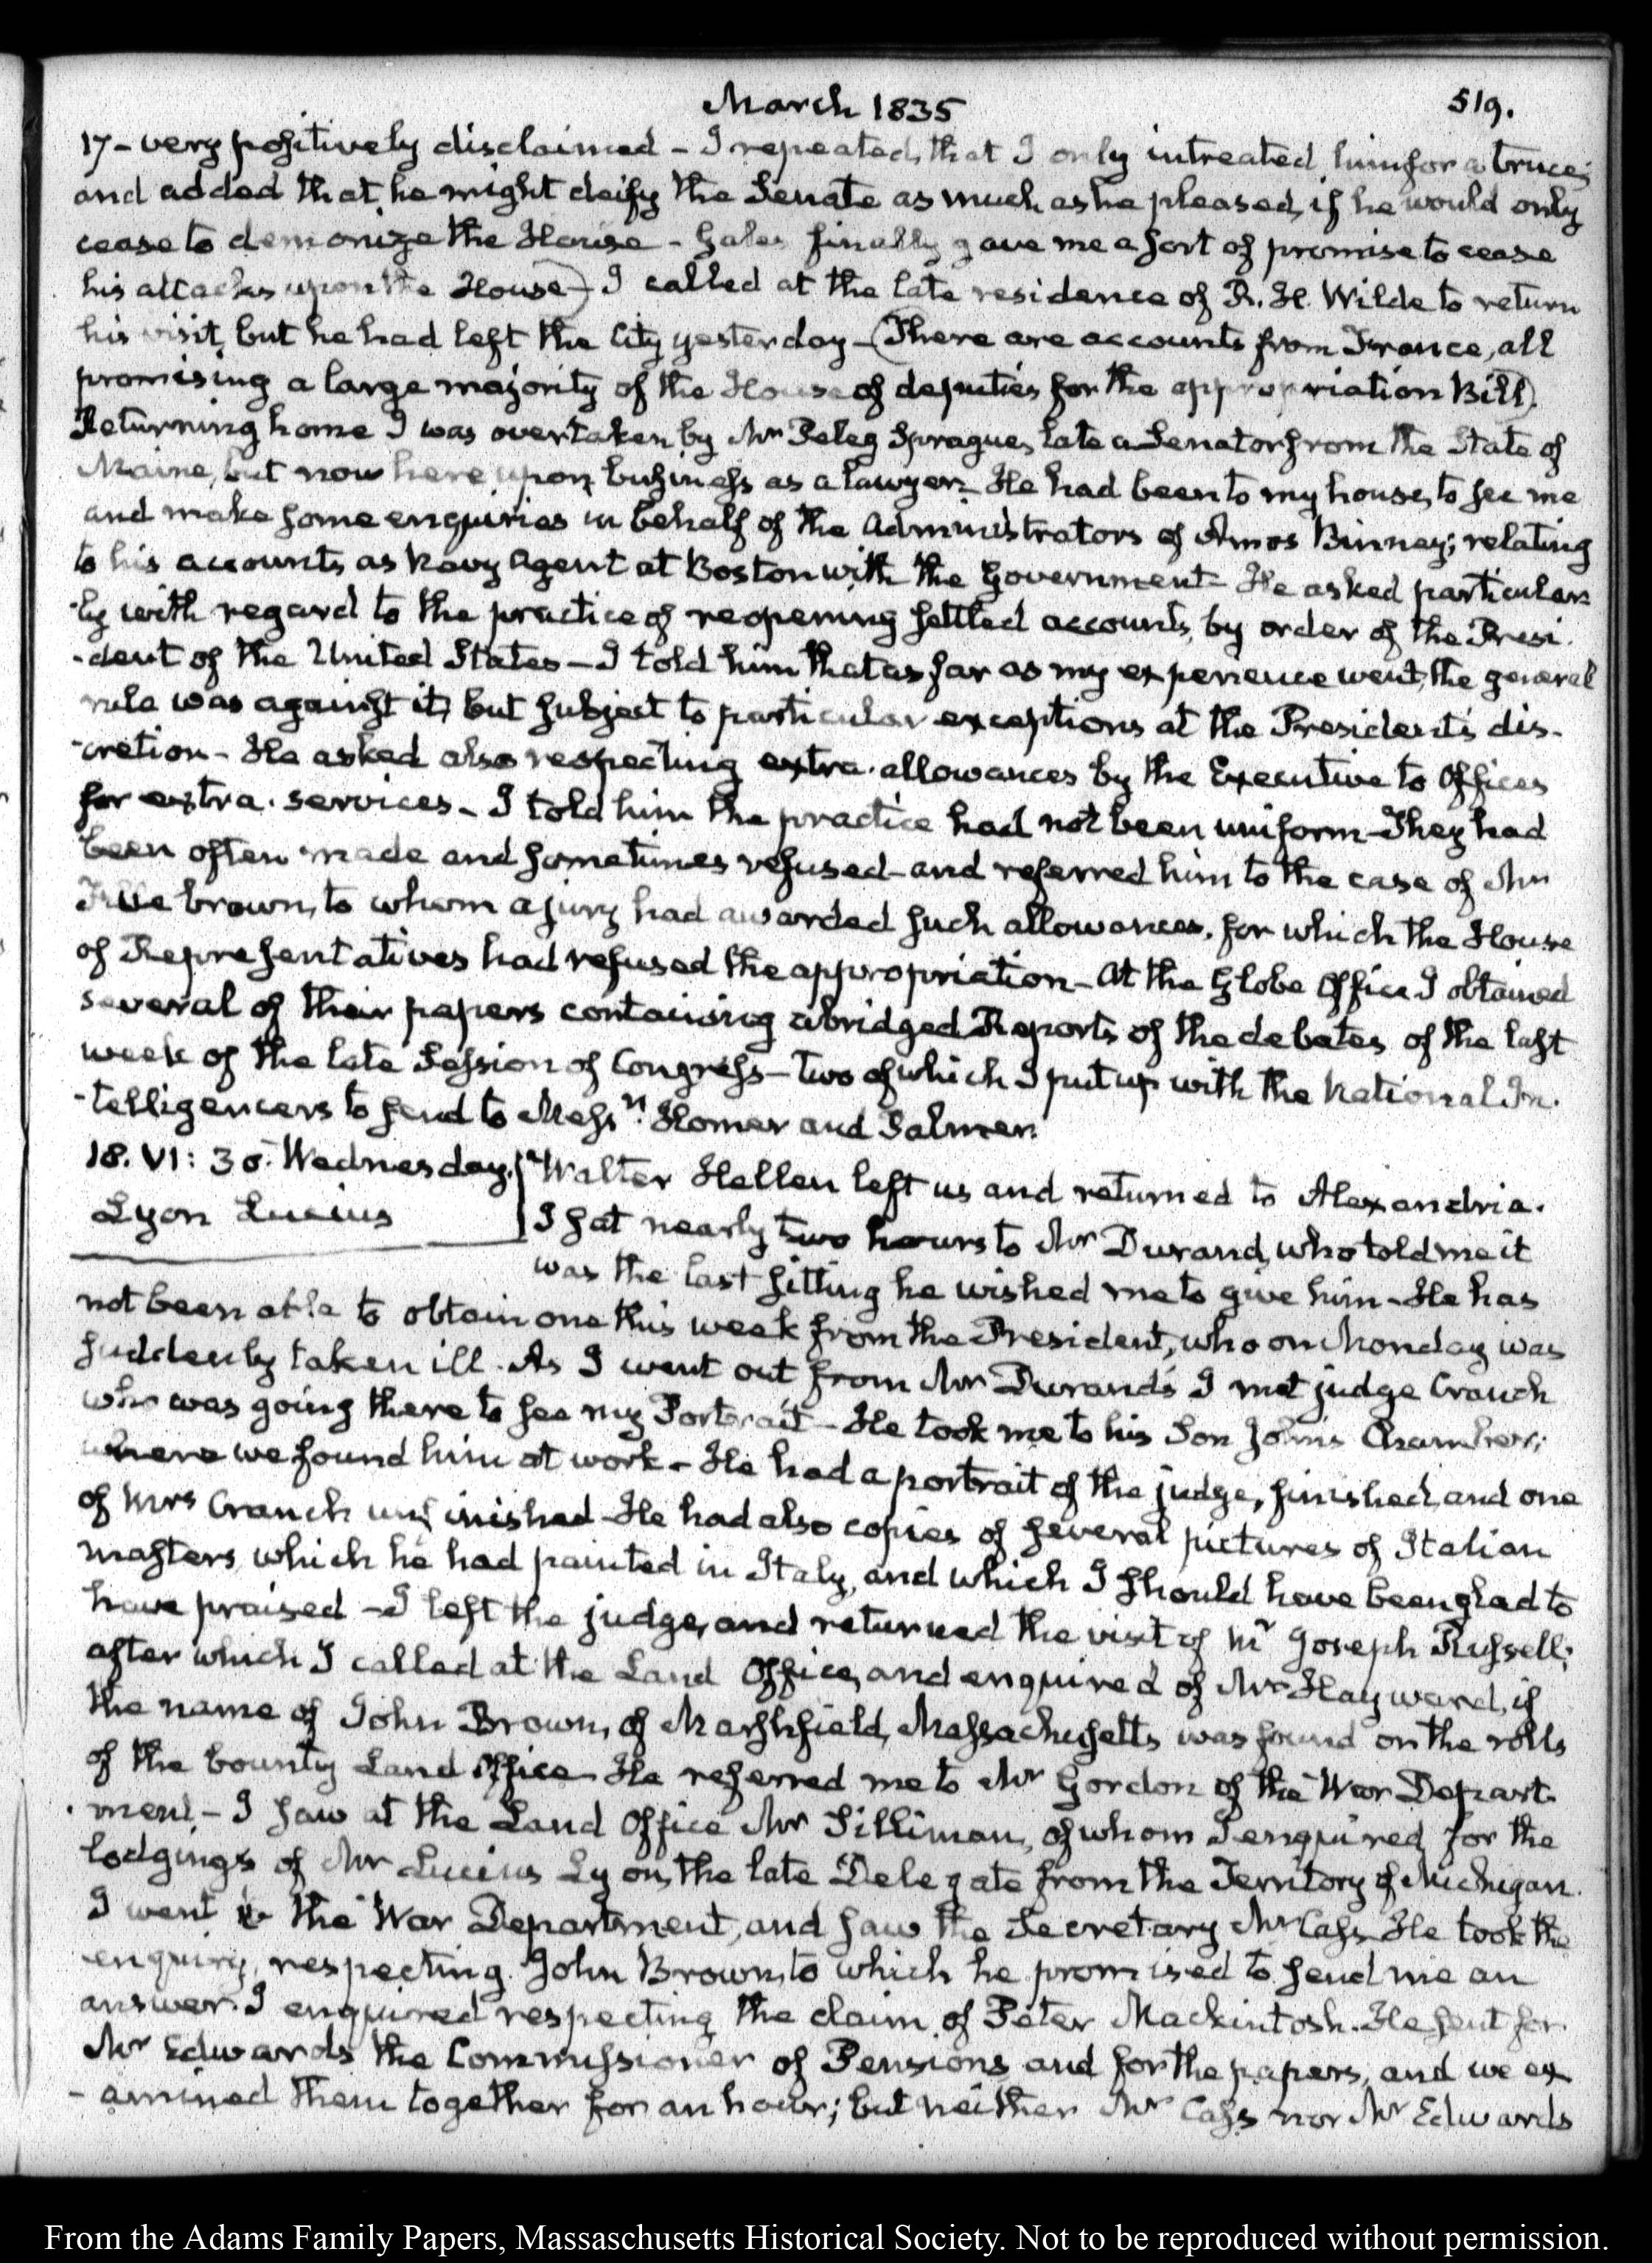 March 1835
519.
17 – very positively disclaimed – I repeated, that I only intreated, him for a truce;
and added that he might deify the Senate as much as he pleased, if he would only
cease to demonize the House – Gales finally gave me a sort of promise to cease
his attacks upon the House) – I called at the late residence of R. H. Wilde to return
his visit, but he had left the City yesterday – (There are accounts from France, all
promising a large majority of the House of deputies for the appropriation Bill).
Returning home I was overtaken by Mr Peleg Sprague, late a Senator from the State of
Maine, but now here upon business as a lawyer – He had been to my house, to see me
and make some enquiries in behalf of the Administrators of Amos Binney; relating
to his accounts, as Navy Agent at Boston with the Government – He asked particular-
-ly with regard to the practice of reopening settled accounts, by order of the Presi-
-dent of the United States – I told him that as far as my experience went, the general
rule was against it, but subject to particular exceptions at the President's dis-
-cretion – He asked also respecting extra-allowances by the Executive to Offices
for extra-services – I told him the practice had not been uniform – They had
been often made and sometimes refused – and referred him to the case of Mr
brown, to whom a jury had awarded such allowances, for which the House
of Representatives had refused the appropriation – At the Globe Office I obtained
several of their papers containing abridged Reports of the debates of the last
week of the late Session of Congress – two of which I put up with the National In-
-telligencers to send to Messrs Homer and Palmer.
18. VI: 30. Wednesday. Walter Hellen left us and returned to Alexandria.
Lyon Lucius I sat nearly two hours to Mr Durand, who told me it
was the last sitting he wished me to give him – He has
not been able to obtain one this week from the President, who on Monday was
suddenly taken ill. As I went out from Mr Durand's I met judge Cranch
who was going there to see my Portrait – He took me to his Son John's Chamber;
where we found him at work – He had a portrait of the judge, finished, and one
of Mrs Cranch unfinished – He had also copies of several pictures of Italian
masters, which he had painted in Italy, and which I should have been glad to
have praised – I left the judge, and returned the visit of Mr Joseph Russell;
after which I called at the Land Office, and enquired of Mr Hayward, if
the name of John Brown, of Marshfield, Massachusetts, was found on the rolls
of the bounty Land Office – He referred me to Mr Gordon of the War Depart-
-ment – I saw at the Land Office Mr Silliman, of whom I enquired for the
lodgings of Mr Lucius Lyon, the late Delegate from the Territory of Michigan.
I went to the War Department, and saw the Secretary Mr Cass – He took the
enquiry, respecting John Brown, to which he promised to send me an
answer. I enquired respecting the claim of Peter Mackintosh. He sent for
Mr Edwards the Commissioner of Pensions and for the papers, and we ex
-amined them together for an hour; but neither Mr Cass nor Mr Edwards
From the Adams Family Papers, Massaschusetts Historical Society. Not to be reproduced without permission.